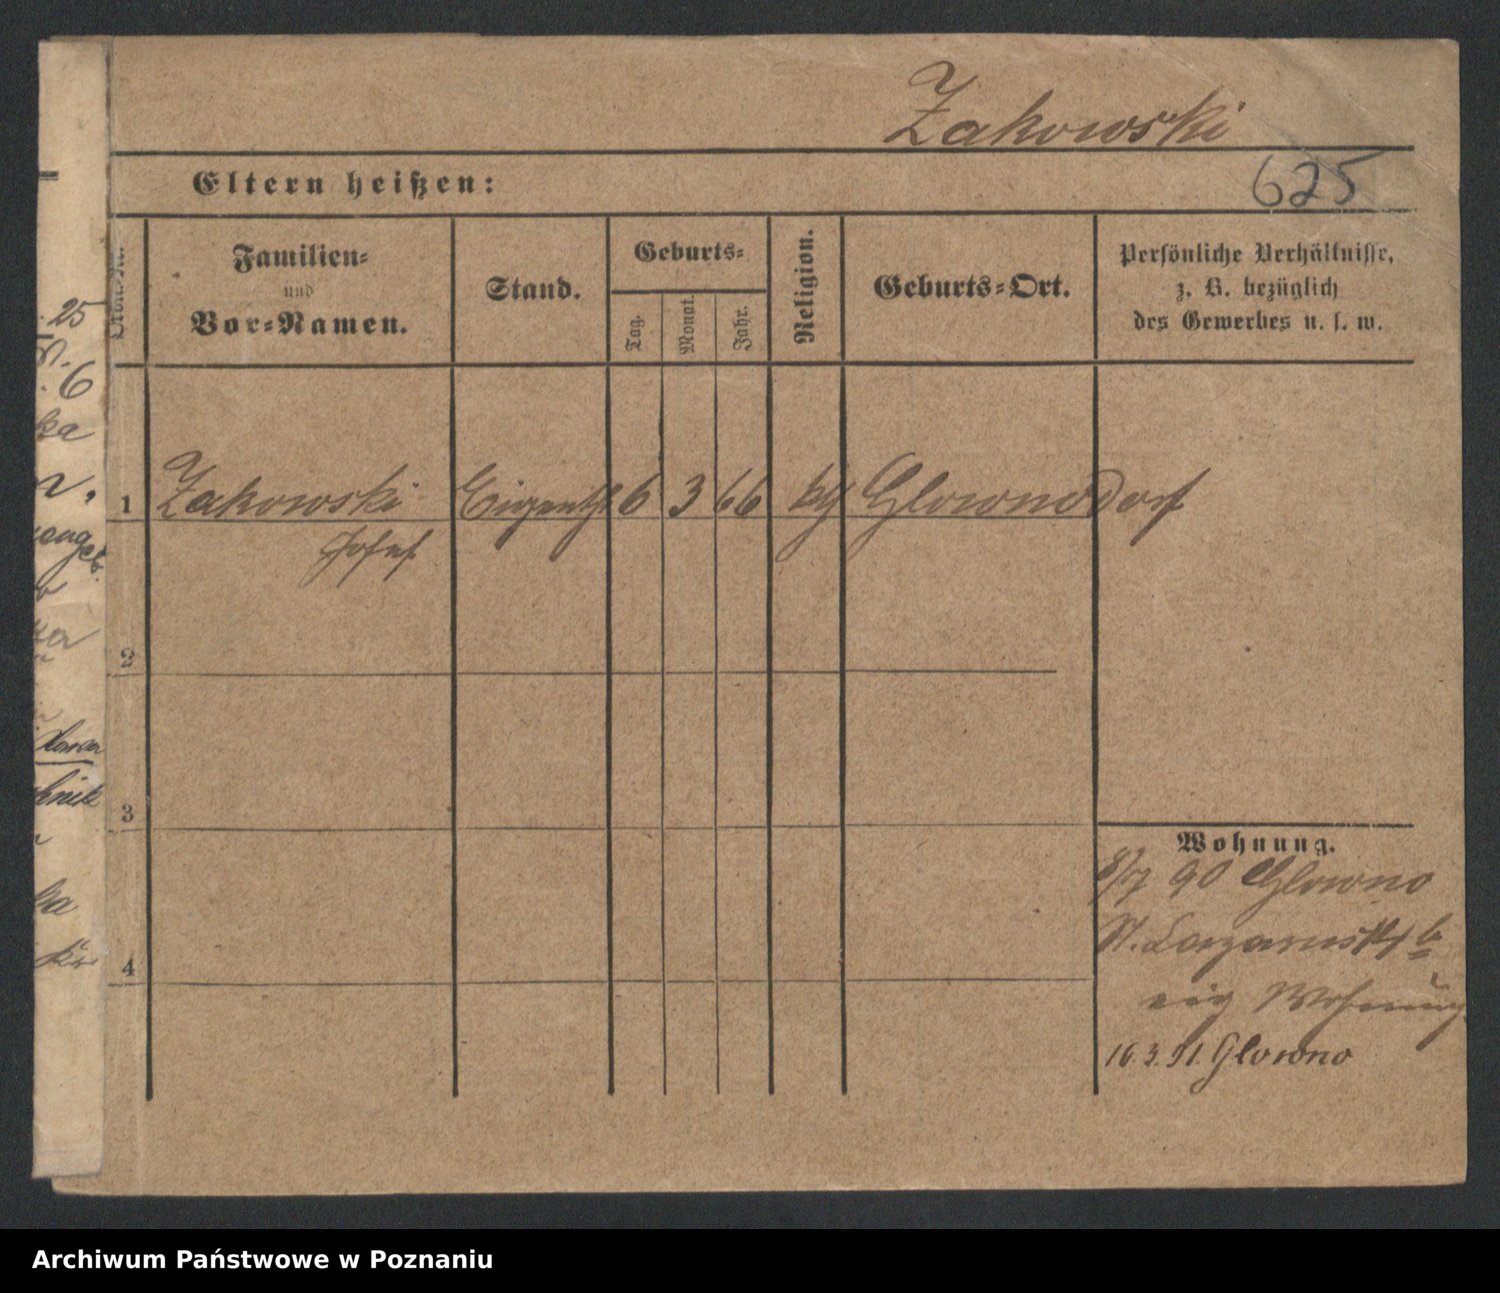 Zakowski
Eltern heißen:
625
Familien-
und
Vor-Namen.
Stand.
Geburts-
Tag.
Monat.
Jahr.
Religion.
Geburts-Ort.
Persönliche Verhältnisse,
z. B. bezüglich
des Gewerbes u. s. w.
1 Zakowski Eigenth 6 3 66 kth Glownodorf
Josef
2
3
4
Wohnung.
8/7 90 Glowno
St. Lazarus
eig Wohnung
16.3.91. Glowno
25
6
ka
Archiwum Państwowe w Poznaniu